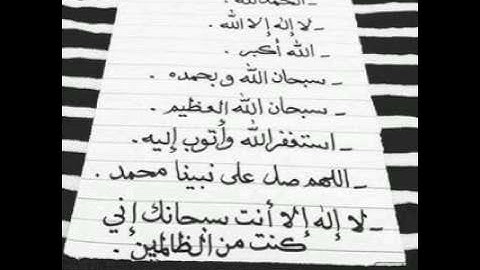 _ الحمدلله .
_ لا إله إلا الله .
_ الله أكبر .
_ سبحان الله وبحمده .
_ سبحان الله العظيم .
_ استغفر الله وأتوب إليه .
_ اللهم صل على نبينا محمد .
_ لا إله إلا أنت سبحانك إني
كنت من الظالمين .